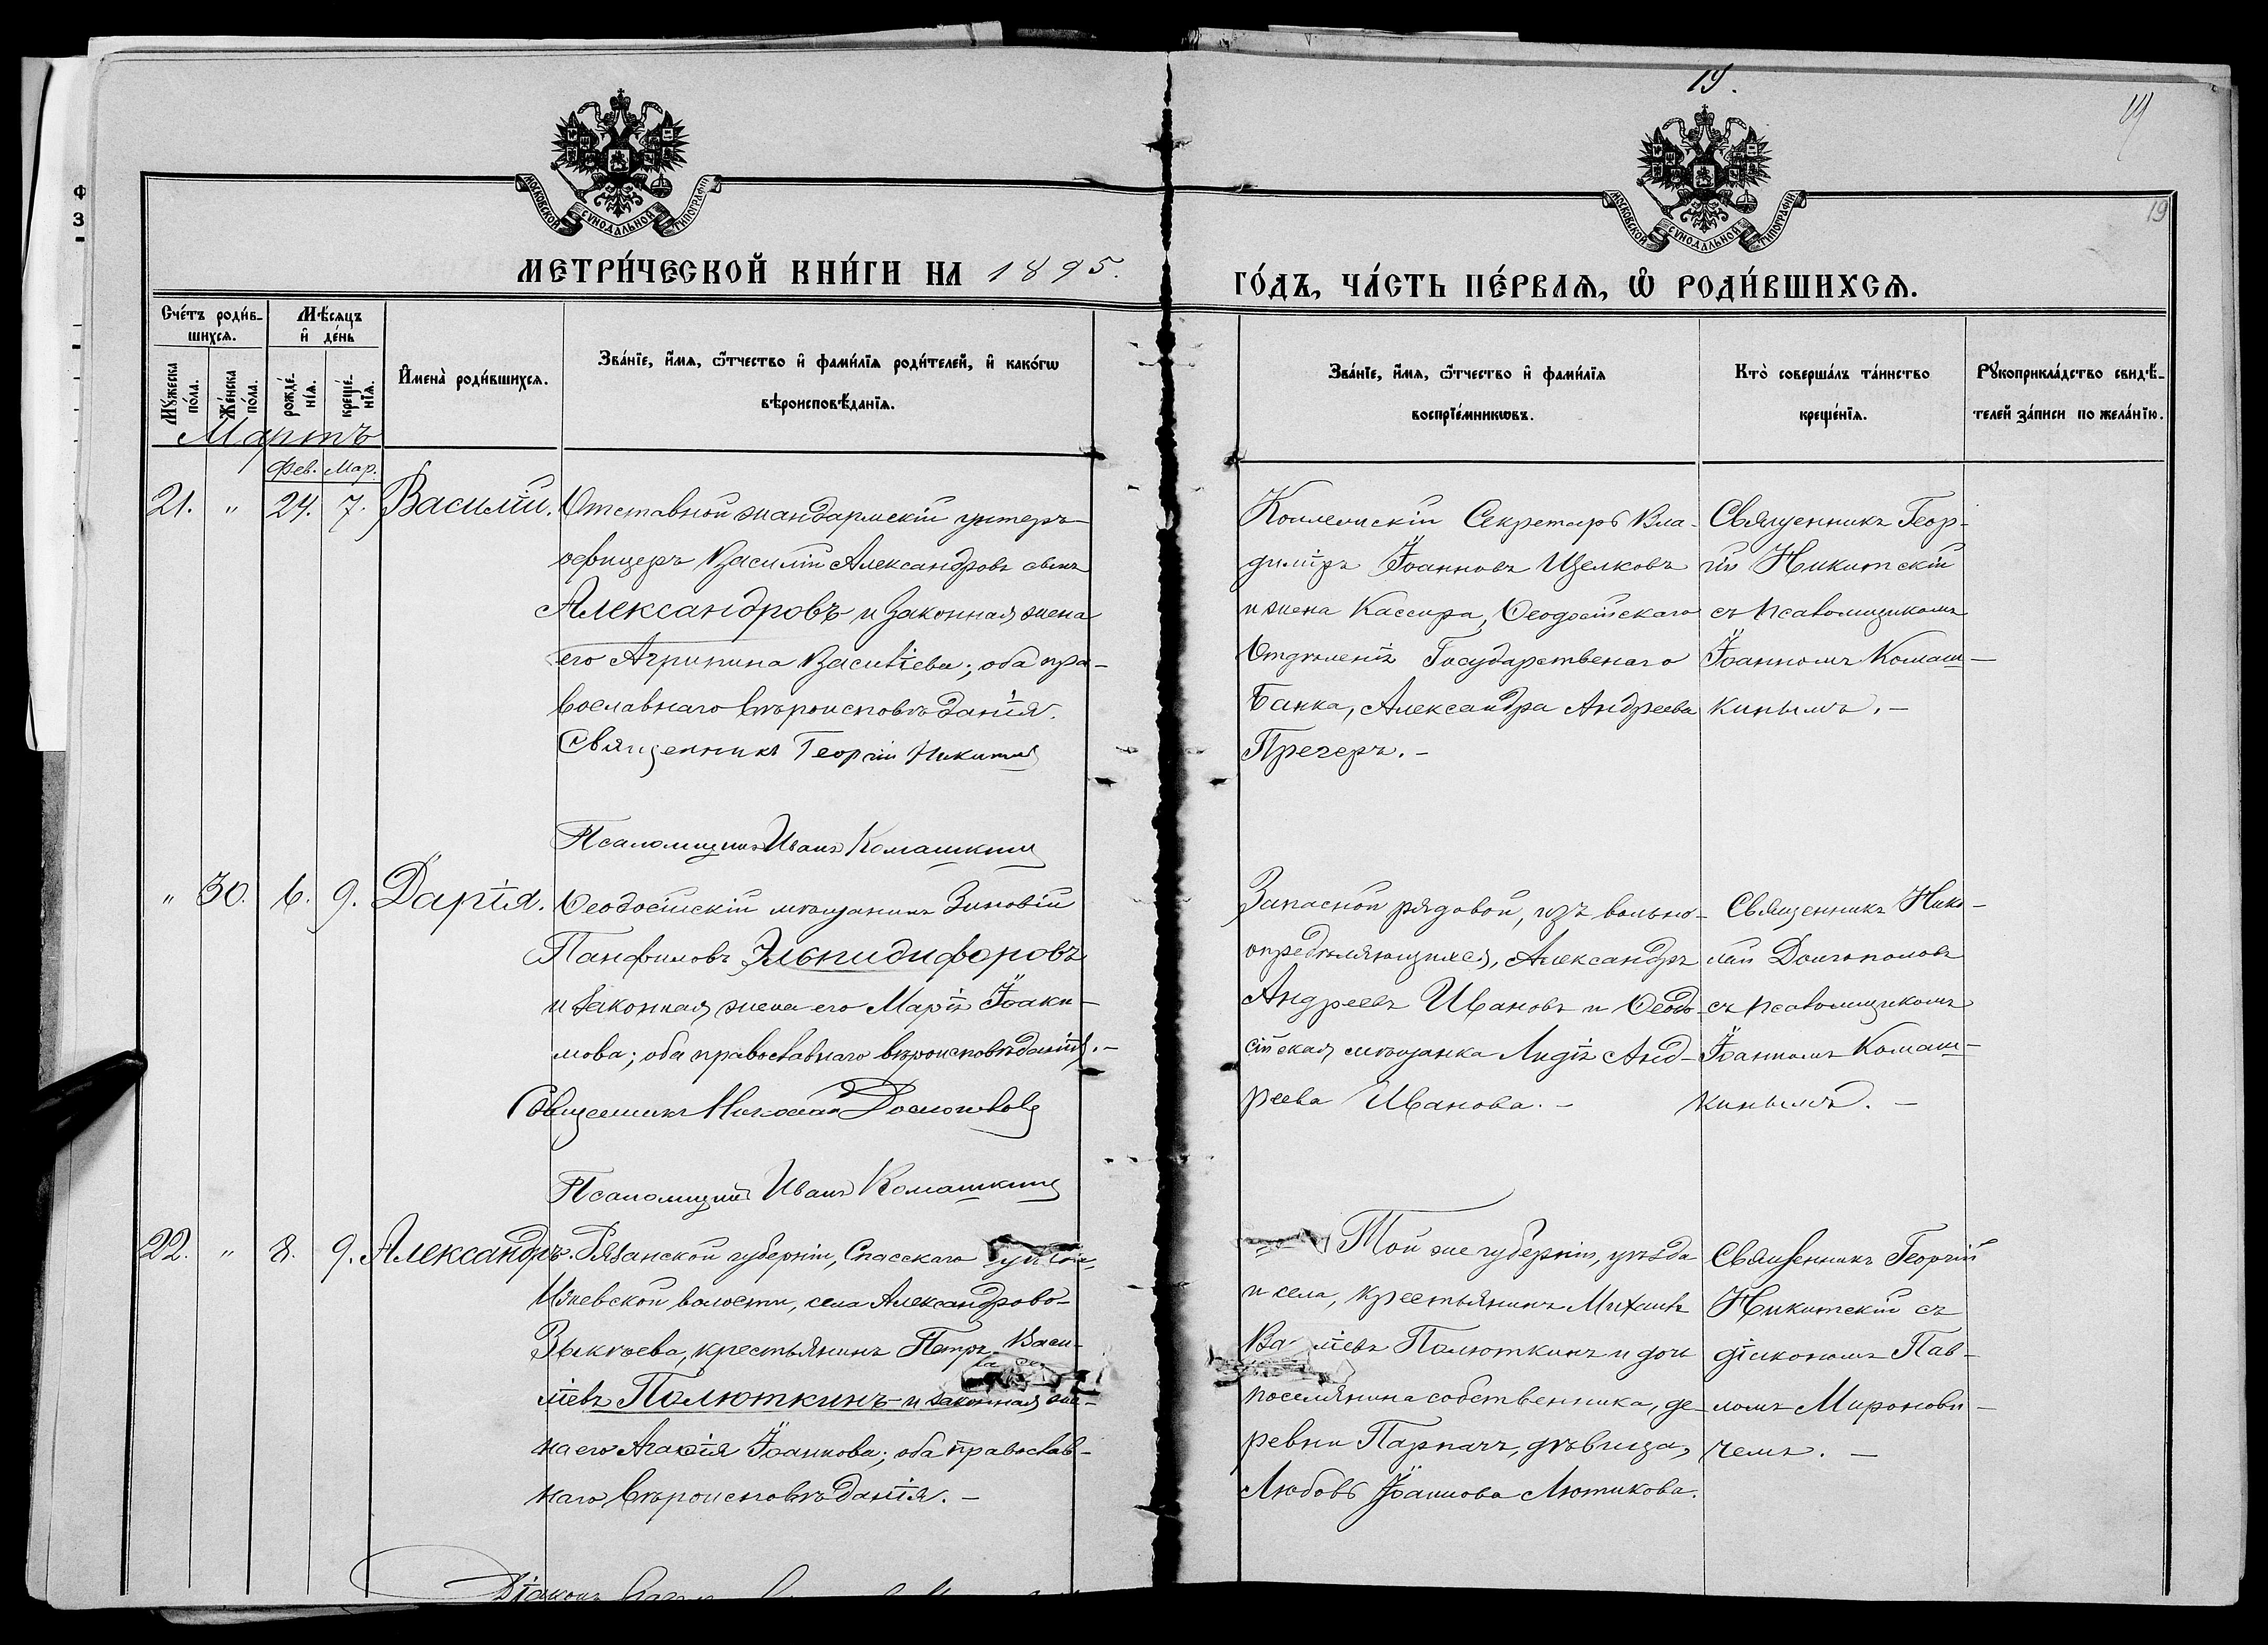 19.
19
МОСКОВСКОЙ СУНОДАЛЬНОЙ ТИПОГРАФІИ
МОСКОВСКОЙ СУНОДАЛЬНОЙ ТИПОГРАФІИ
19
МЕТРИ́ЧЕСКОЙ КНИ́ГИ НА 1895.
ГО́ДЪ, ЧА́СТЬ ПЕ́РВАѦ, Ѡ҆ РОДИ́ВШИХСѦ.
Сче́тъ роди́в-
шихсѧ.
Мꙋ́жеска по́ла.
Же́нска по́ла.
Мѣ́сѧцъ
и҆ де́нь
рожде́-
нїѧ.
креще́-
нїѧ.
И҆мена̀ роди́вшихсѧ.
Зва́нїе, и҆́мѧ, ѻ҆́тчество и҆ фами́лїѧ роди́телей, и҆ како́гѡ
вѣроисповѣ́данїѧ.
Зва́нїе, и҆́мѧ, ѻ҆́тчество и҆ фами́лїѧ
воспрїе́мникѡвъ.
Кто̀ соверша́лъ та́инство
креще́нїѧ.
Рꙋкоприкла́дство свидѣ́-
телей за́писи по жела́нїю.
Мартъ
Фев. Мар.
21. " 24. 7. Василій.
Отставной жандармскій унтеръ-
офицеръ Василій Александровъ сынъ
Александровъ и законная жена
его Агрипина Василіева; оба пра-
вославнаго вѣроисповѣданія.
Священникъ Георгій Никитскій
Псаломщикъ Иванъ Комашкинъ
Коллежскій Секретарь Вла-
димиръ Іоанновъ Щелковъ
и жена Кассира, Ѳеодосійскаго
Отдѣленія Государственаго
Банка, Александра Андреева
Пречеръ. -
Священникъ Геор-
гій Никитскій
съ псаломщикомъ
Іоанномъ Комаш-
кинымъ. -
" 30. 6. 9. Дарія.
Ѳеодосійскій мѣщанинъ Зиновій
Панфиловъ Эльпидифоровъ
и законная жена его Марія Іоаки-
мова; оба православнаго вѣроисповѣданія. -
Священникъ Николай Долгополовъ
Псаломщикъ Иванъ Комашкинъ
Запасной рядовой, изъ вольно-
опредѣляющихся, Александръ
Андреевъ Ивановъ и Ѳеодо-
сійская мѣщанка Лидія Анд-
реева Иванова. -
Священникъ Нико-
лай Долгополовъ
съ псаломщикомъ
Іоанномъ Комаш-
кинымъ. -
22. " 8. 9. Александръ.
Рязанской губерніи, Спасскаго
волости, села Александрово-
крестьянинъ Петръ Васи-
ліевъ Полюткинъ и законная же-
на его Агафія Іоаннова; оба православ-
наго вѣроисповѣданія. -
Діаконъ
Той же губерніи, уѣзда
и села, крестьянинъ Михаилъ
Ва ліевъ Полюткинъ и дочь
поселянина собственника, де-
ревни Парпачъ, дѣвица,
Любовь Іоаннова Лютикова.
Священникъ Георгій
Никитскій съ
діакономъ Пав-
ломъ Миронови-
чемъ. -